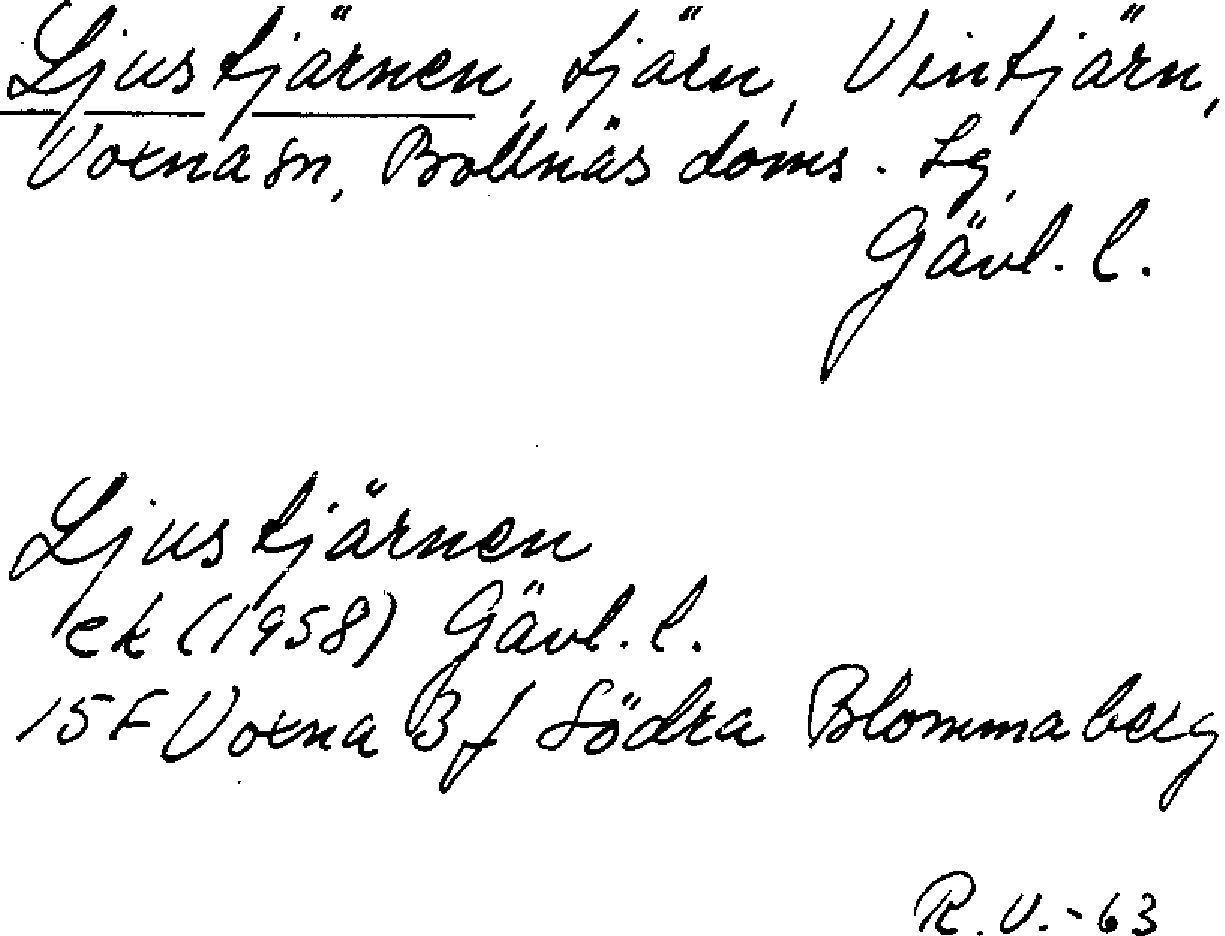 Ljustjärnen, tjärn, Vintjärn,
Voxna sn, Bollnäs doms. Lg,
Gävl. l.
Ljustjärnen
ek (1958) Gävl. l.
15F Voxna B f Södra Blommaberg
R.V.-63